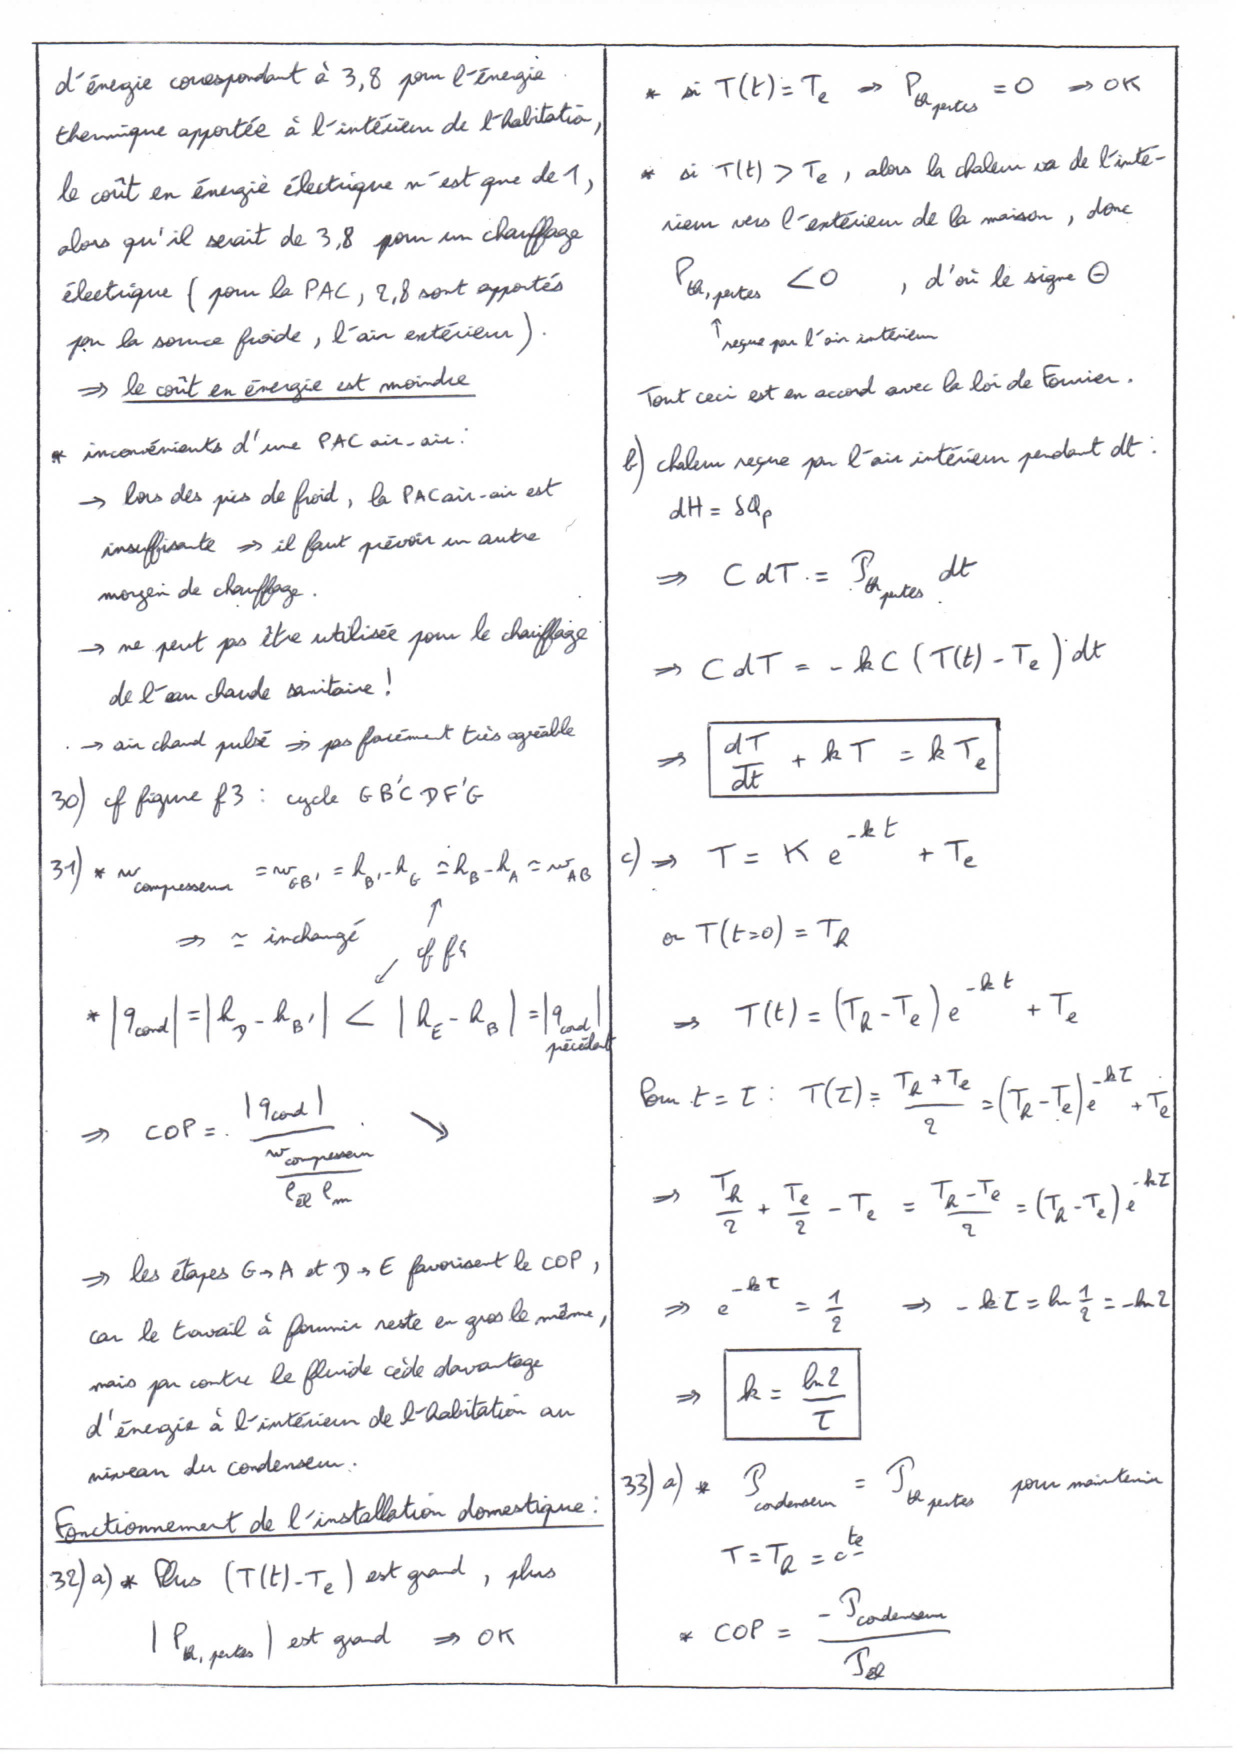 d'énergie correspondant à 3,8 pour l'énergie
thermique apportée à l'intérieur de l'habitatiō,
le coût en énergie électrique n'est que de 1,
alors qu'il serait de 3,8 pour un chauffage
électrique (pour la PAC, 2,8 sont apportés
par la source froide, l'air extérieur).
⇒ le coût en énergie est moindre
* inconvénients d'une PAC air-air :
→ lors des pics de froid, la PAC air-air est
insuffisante ⇒ il faut prévoir un autre
moyen de chauffage.
→ ne peut pas être utilisée pour le chauffage
de l'eau chaude sanitaire !
→ air chaud pulsé ⇒ pas forcément très agréable
30) cf figure f3 : cycle GB'CDF'G
31) * w_compresseur = w_GB' = h_B' - h_G ≃ h_B - h_A ≃ w_AB
⇒ ≃ inchangé
cf f4
* |q_cond| = |h_D - h_B'| < |h_E - h_B| = |q_cond précédent|
⇒ COP = |q_cond| / (w_compresseur / (ρ_él ρ_m)) ↘
⇒ les étapes G→A et D→E favorisent le COP,
car le travail à fournir reste en gros le même,
mais par contre le fluide cède davantage
d'énergie à l'intérieur de l'habitation au
niveau du condenseur.
Fonctionnement de l'installation domestique :
32) a) * Plus (T(t) - T_e) est grand, plus
|P_th, pertes| est grand ⇒ OK
* si T(t) = T_e ⇒ P_th pertes = 0 ⇒ OK
* si T(t) > T_e, alors la chaleur va de l'inté-
rieur vers l'extérieur de la maison, donc
P_th, pertes < 0 , d'où le signe ⊖
↑ reçue par l'air intérieur
Tout ceci est en accord avec la loi de Fourier.
b) chaleur reçue par l'air intérieur pendant dt :
dH = δQ_p
⇒ C dT = P_th pertes dt
⇒ C dT = - k C (T(t) - T_e) dt
⇒ dT/dt + k T = k T_e
c) ⇒ T = K e^{-kt} + T_e
or T(t=0) = T_h
⇒ T(t) = (T_h - T_e) e^{-kt} + T_e
Pour t = τ : T(τ) = (T_h + T_e)/2 = (T_h - T_e) e^{-kτ} + T_e
⇒ T_h/2 + T_e/2 - T_e = (T_h - T_e)/2 = (T_h - T_e) e^{-kτ}
⇒ e^{-kτ} = 1/2 ⇒ - kτ = ln 1/2 = - ln 2
⇒ k = ln 2 / τ
33) a) * P_condenseur = P_th pertes pour maintenir
T = T_h = c^te
* COP = - P_condenseur / P_él